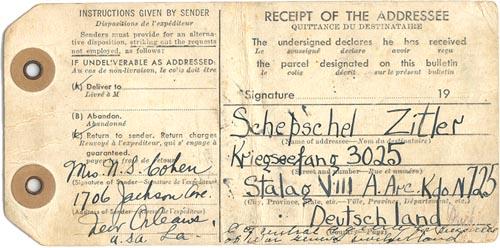 INSTRUCTIONS GIVEN BY SENDER
Dispositions de l'expéditeur
Senders must provide for an alterna-
tive disposition, striking out the requests
not employed, as follows:
IF UNDELIVERABLE AS ADDRESSED:
Au cas de non-livraison, le colis doit être
(A) Deliver to
Livré à M
(B) Abandon.
Abandonné
(C) Return to sender. Return charges
Renvoyé à l'expéditeur, qui s'engage à
guaranteed.
payer
Mrs. N. S. Cohen
(Signature of Sender—Signature de l'expéditeur)
1706 Jackson Ave.
New Orleans
U.S.A. La.
RECEIPT OF THE ADDRESSEE
QUITTANCE DU DESTINATAIRE
The undersigned declares he has received
Le soussigné déclare avoir reçu
the parcel designated on this bulletin
le colis désigné sur le présent bulletin
Signature 19
Schepschel Zitler
(Name of addressee—Nom du destinataire)
Kriegsgefang 3025
(Street and Number—Rue et numéro)
Stalag VIII A. Arc. Kdo N 725
Deutschland
of war